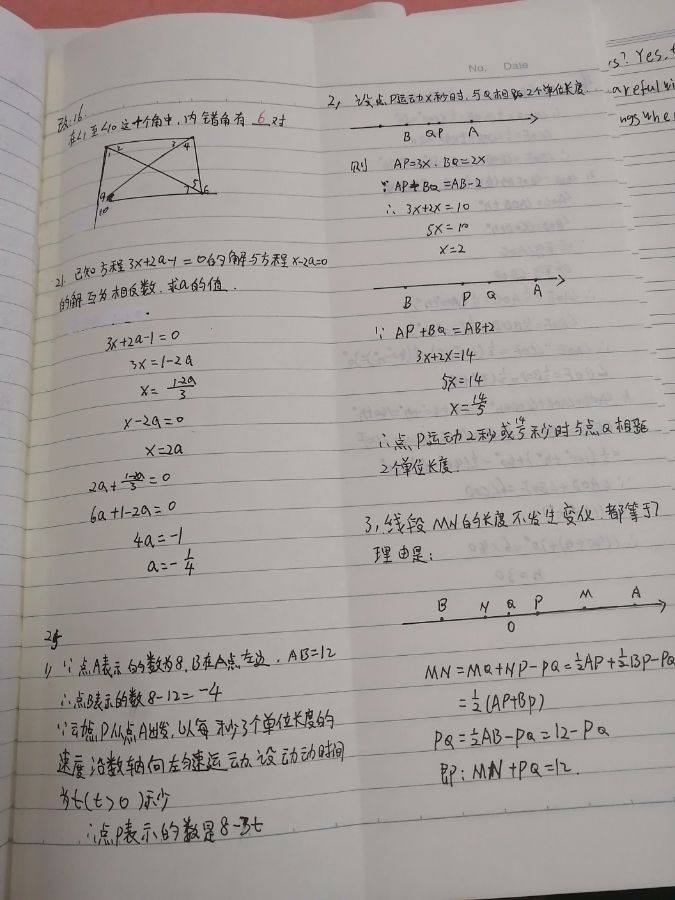 改:16.
在∠1至∠10这十个角中，内错角有 6 对
1 2 3 4
9 10 7 5 6
21. 已知方程3x+2a-1=0的解与方程x-2a=0
的解互为相反数.求a的值.
3x+2a-1=0
3x=1-2a
x=\frac{1-2a}{3}
x-2a=0
x=2a
2a+\frac{1-2a}{3}=0
6a+1-2a=0
4a=-1
a=-\frac{1}{4}
25
1) ∵点A表示的数为8,B在A点左边.AB=12
∴点B表示的数8-12=-4
∵动点P从点A出发,以每秒3个单位长度的
速度沿数轴向左匀速运动.设动动时间
为t(t>0)秒
∴点P表示的数是8-3t
No. Date
2, 设点P运动x秒时,与Q相距2个单位长度.
B Q P A
则 AP=3x.BQ=2x
∵AP+BQ=AB-2
∴3x+2x=10
5x=10
x=2
B P Q A
∵ AP+BQ=AB+2
3x+2x=14
5x=14
x=\frac{14}{5}
∴点P运动2秒或\frac{14}{5}秒时与点Q相距
2个单位长度.
3,线段MN的长度不发生变化.都等于7
理由是:
B N Q P M A
0
MN=MQ+NP-PQ=½AP+½BP-PQ
=½(AP+BP)
PQ=½AB-PQ=12-PQ
即:MN+PQ=12.
s? Yes,
areful
ngs whe